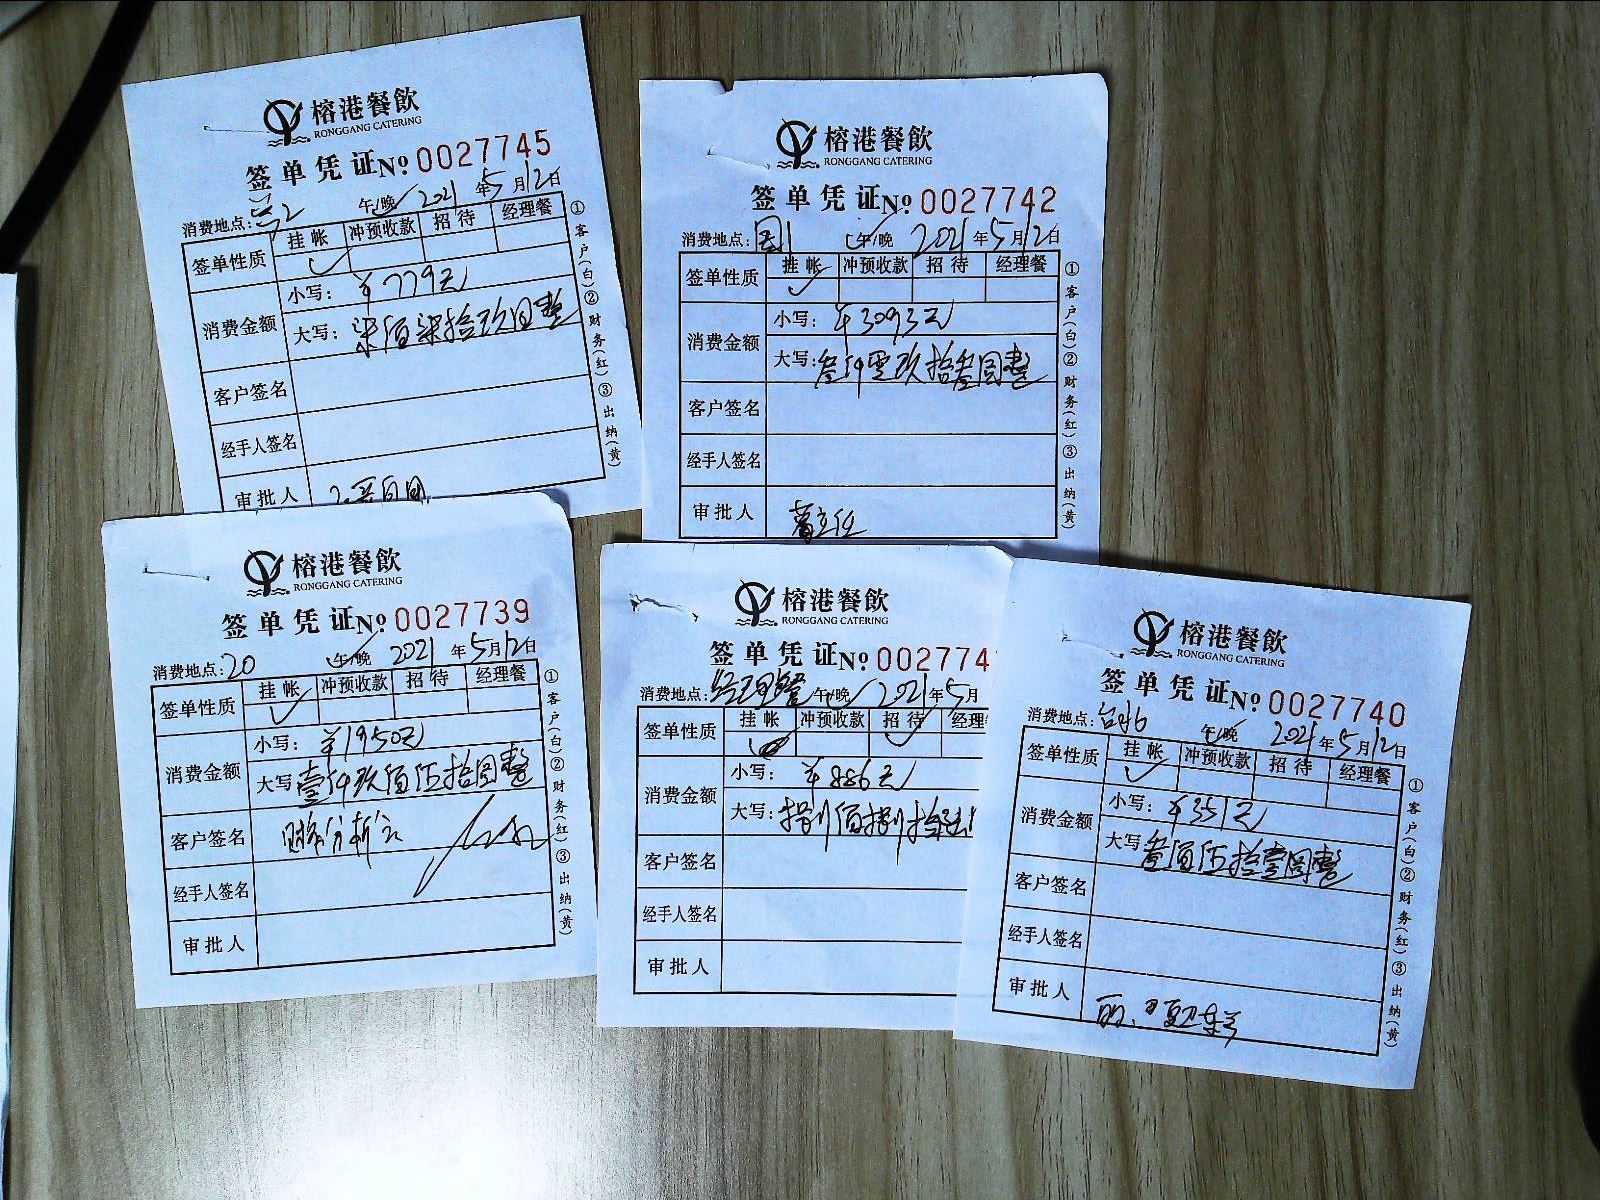 榕港餐飲
RONGGANG CATERING
签单凭证 No 0027745
消费地点: 午/晚 2021年5月12日
签单性质 挂帐 冲预收款 招待 经理餐
消费金额 小写: ¥779元
大写: 柒佰柒拾玖圆整
客户签名
经手人签名
审批人
①客户(白)②财务(红)③出纳(黄)
榕港餐飲
RONGGANG CATERING
签单凭证 No 0027742
消费地点: 午/晚 2021年5月12日
签单性质 挂帐 冲预收款 招待 经理餐
消费金额 小写: ¥3093元
大写: 叁仟零玖拾叁圆整
客户签名
经手人签名
审批人 主任
①客户(白)②财务(红)③出纳(黄)
榕港餐飲
RONGGANG CATERING
签单凭证 No 0027739
消费地点: 20 午/晚 2021年5月12日
签单性质 挂帐 冲预收款 招待 经理餐
消费金额 小写: ¥1950元
大写 壹仟玖佰伍拾圆整
客户签名
经手人签名
审批人
①客户(白)②财务(红)③出纳(黄)
榕港餐飲
RONGGANG CATERING
签单凭证 No 002774
消费地点: 经理餐 午/晚 2021年5月
签单性质 挂帐 冲预收款 招待 经理
消费金额 小写: ¥886元
大写: 捌佰捌拾
客户签名
经手人签名
审批人
榕港餐飲
RONGGANG CATERING
签单凭证 No 0027740
消费地点: 午/晚 2021年5月12日
签单性质 挂帐 冲预收款 招待 经理餐
消费金额 小写: ¥351元
大写 叁佰伍拾壹圆整
客户签名
经手人签名
审批人
①客户(白)②财务(红)③出纳(黄)